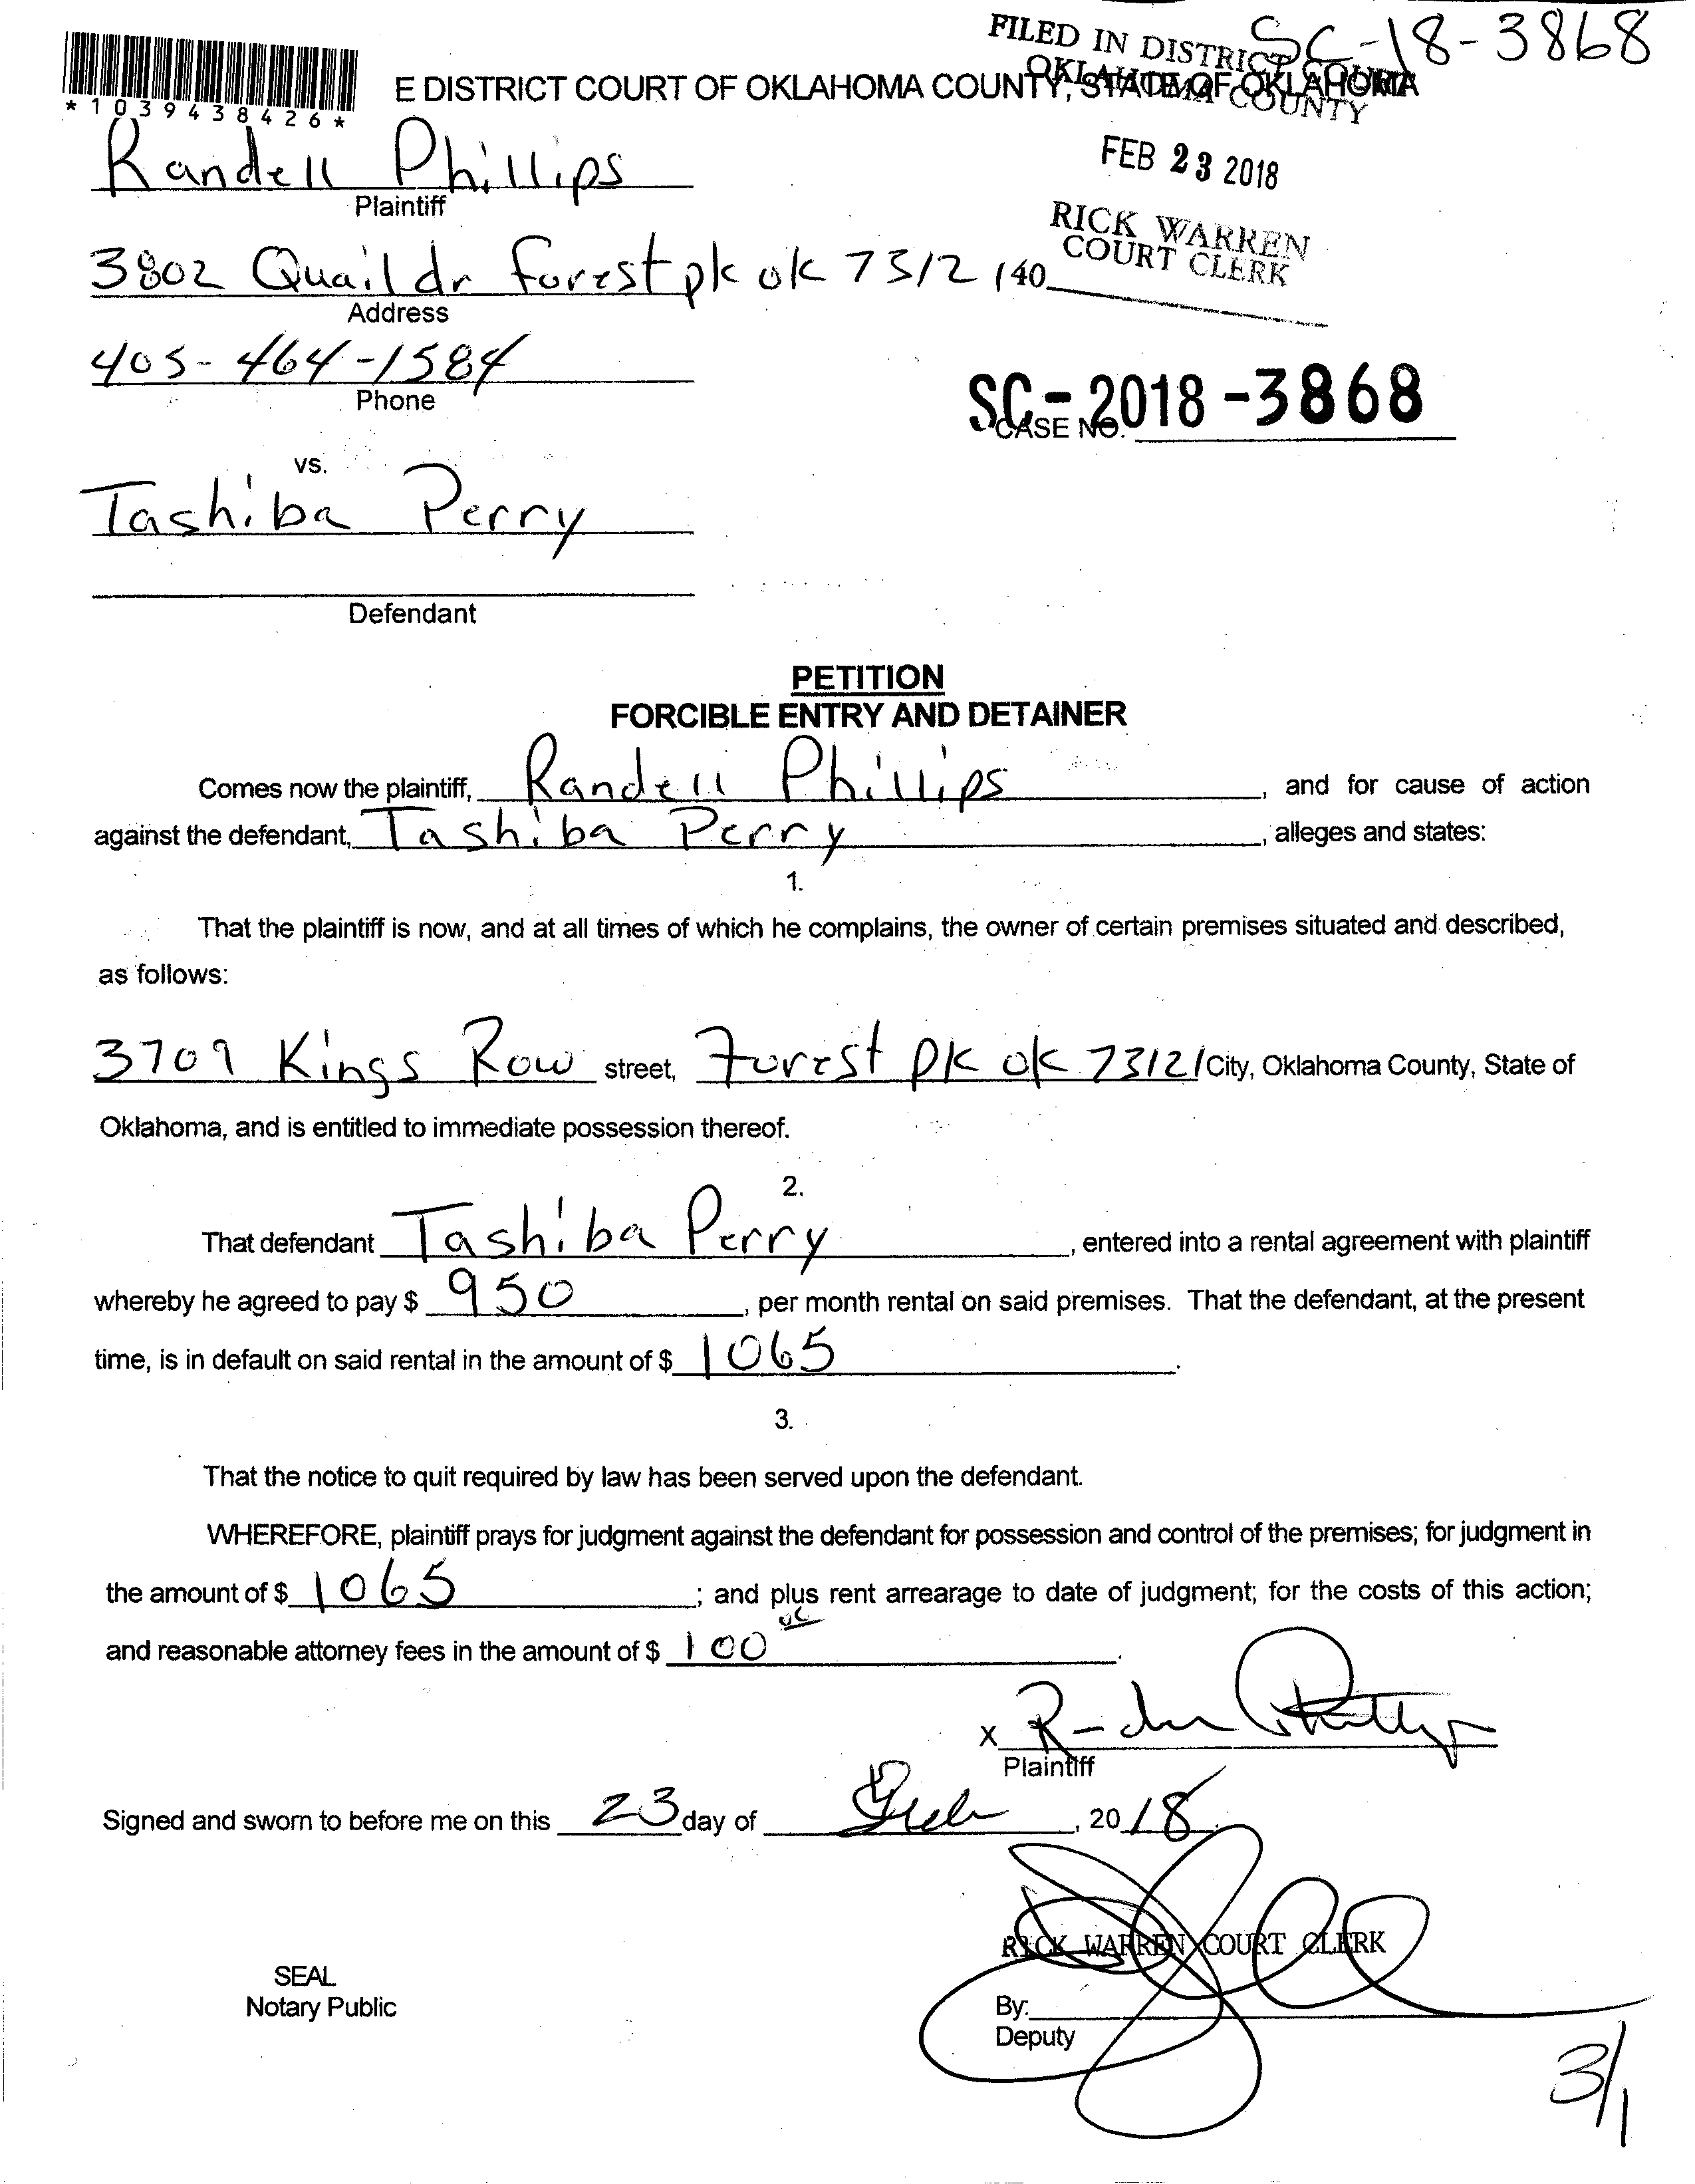 SC-18-3868
FILED IN DISTRICT COURT
OKLAHOMA COUNTY
E DISTRICT COURT OF OKLAHOMA COUNTY, STATE OF OKLAHOMA
*1039438426*
FEB 23 2018
Randell Phillips
Plaintiff
RICK WARREN
COURT CLERK
3802 Quail dr Forest pk ok 73121
40
Address
405-464-1584
Phone
SC-2018-3868
CASE NO.
vs.
Tashiba Perry
Defendant
PETITION
FORCIBLE ENTRY AND DETAINER
Comes now the plaintiff, Randell Phillips, and for cause of action
against the defendant, Tashiba Perry, alleges and states:
1.
That the plaintiff is now, and at all times of which he complains, the owner of certain premises situated and described,
as follows:
3709 Kings Row street, Forest pk ok 73121 City, Oklahoma County, State of
Oklahoma, and is entitled to immediate possession thereof.
2.
That defendant Tashiba Perry, entered into a rental agreement with plaintiff
whereby he agreed to pay $ 950, per month rental on said premises. That the defendant, at the present
time, is in default on said rental in the amount of $ 1065.
3.
That the notice to quit required by law has been served upon the defendant.
WHEREFORE, plaintiff prays for judgment against the defendant for possession and control of the premises; for judgment in
the amount of $ 1065; and plus rent arrearage to date of judgment; for the costs of this action;
and reasonable attorney fees in the amount of $ 100 00.
X
Plaintiff
Signed and sworn to before me on this 23 day of Feb, 2018.
RICK WARREN COURT CLERK
SEAL
Notary Public
By:
Deputy
3/1